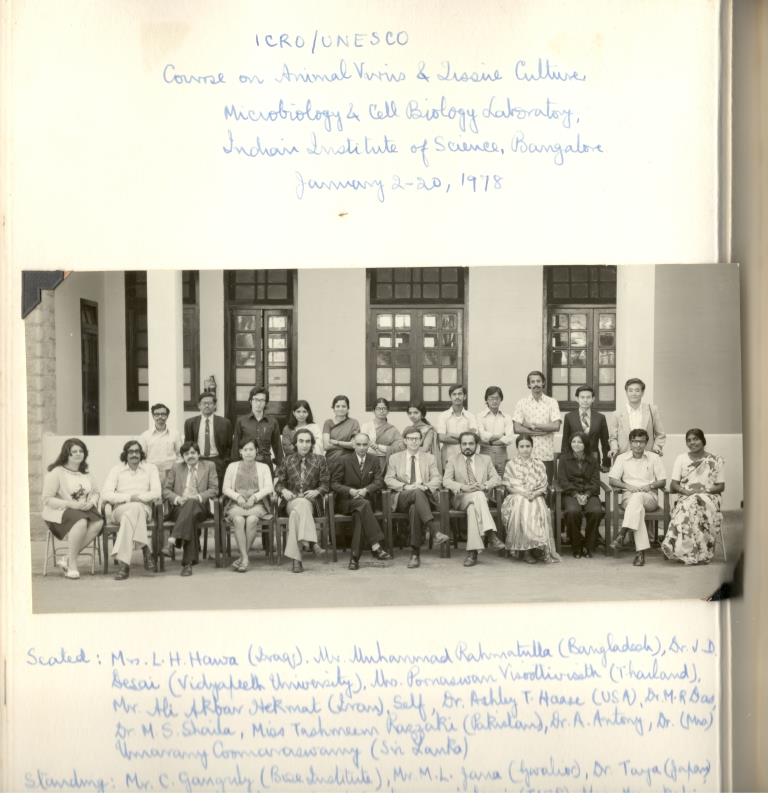 ICRO/UNESCO
Course on Animal Virus & Tissue Culture,
Microbiology & Cell Biology Laboratory,
Indian Institute of Science, Bangalore
January 2-20, 1978
Seated: Mrs. L. H. Hawa (Iraq). Mr. Muhammad Rahmatulla (Bangladesh), Dr. V. D.
Desai (Vidyapeeth University), Mrs. Pornaswan Visoottiviseth (Thailand),
Mr. Ali Akbar Hekmat (Iran), Self, Dr. Ashley T. Haase (USA), Dr. M. R. Das,
Dr. M. S. Shaila, Miss Tashmeem Razzaki (Pakistan), Dr. A. Antony, Dr. (Mrs)
Umarany Coomaraswamy (Sri Lanka)
Standing: Mr. C. Ganguly (Bose Institute), Mr. M. L. Jana (Gwalior), Dr. Taya (Japan)